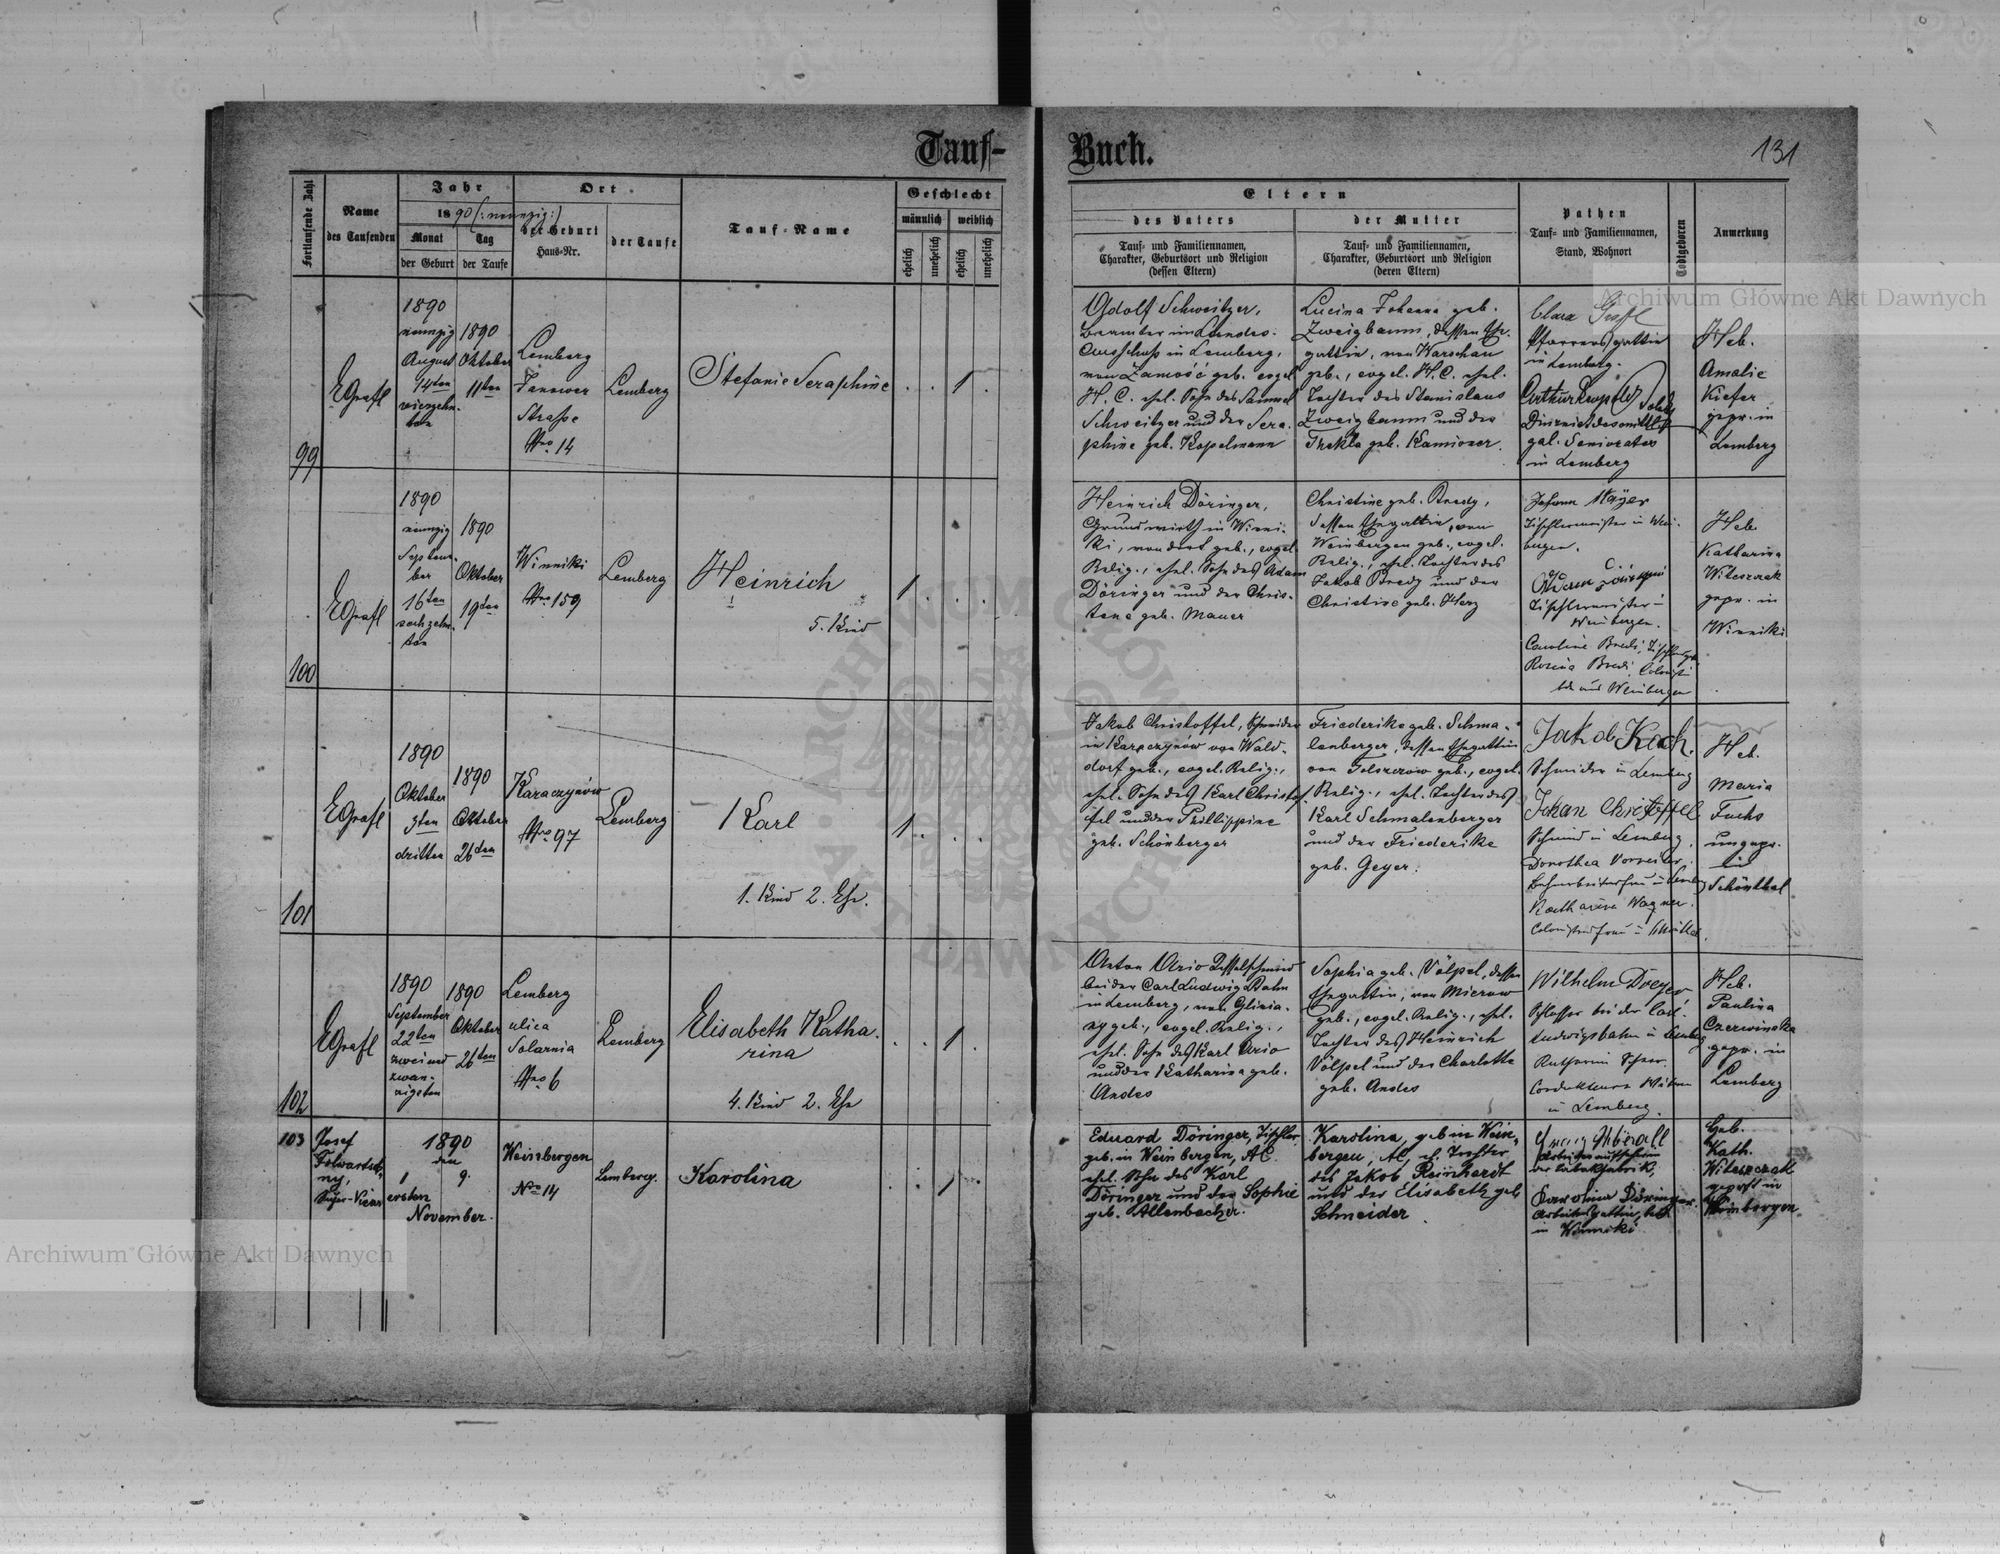 Tauf-
Buch.
131
Fortlaufende Zahl
Name
des Taufenden
Jahr
1890 (:neunzig:)
Monat
der Geburt
Tag
der Taufe
Ort
der Geburt
Haus-Nr.
der Taufe
Tauf-Name
Geschlecht
männlich
weiblich
ehelich
unehelich
ehelich
unehelich
Eltern
des Vaters
Tauf- und Familiennamen,
Charakter, Geburtsort und Religion
(dessen Eltern)
der Mutter
Tauf- und Familiennamen,
Charakter, Geburtsort und Religion
(deren Eltern)
Pathen
Tauf- und Familiennamen,
Stand, Wohnort
Todtgeboren
Anmerkung
99
EGrafl
1890
neunzig
August
14ten
vierzehn-
ten
1890
Oktober
11ten
Lemberg
Janower
Straße
Nro 14
Lemberg
Stefanie Seraphine
1
Adolf Schweitzer,
Beamter im Landes-
Ausschuß in Lemberg,
von Zamość geb. evgel
H. C. ehl. Sohn des Samuel
Schweitzer und der Sera-
phine geb. Kopelmann
Lucina Johanna geb.
Zweigbaum, dessen Ehe-
gattin, von Warschau
geb., evgel. H. C. ehl.
Tochter des Stanislaus
Zweigbaum und der
Thekla geb. Kamioner.
Clara Grafl
Pfarrersgattin
in Lemberg.
gal. Seniorates
in Lemberg
Heb.
Amalie
Kiefer
gepr. in
Lemberg
100
EGrafl
1890
neunzig
Septem-
ber
16ten
sechzehn-
ten
1890
Oktober
19ten
Winniki
Nro 159
Lemberg
Heinrich
5. Kind
1
Heinrich Döringer,
Grundwirth in Winni-
ki, von dort geb., evgel.
Relig., ehl. Sohn des Adam
Döringer und der Chris-
tene geb. Mauer
Christine geb. Bredy,
dessen Ehegattin, von
Weinbergen geb., evgel.
Relig., ehl. Tochter des
Jakob Bredy und der
Christine geb. Herz
Johann Mayer
Tischlermeister in Wein-
bergen.
Adam Döringer
Tischlermeister in
Weinbergen.
Caroline Bredi,
Rosina Bredi,
aus Weinbergen
Heb.
Katharina
Witeszczak
gepr. in
Winniki
101
EGrafl
1890
Oktober
3ten
dritten
1890
Oktober
26ten
Karaczynów
Nro 97
Lemberg
Karl
1. Kind 2. Ehe.
1
Jakob Christoffel, Schneider
in Karaczynów von Wald-
dorf geb., evgel. Relig.,
ehl. Sohn des Karl Christof-
fel und der Phillippine
geb. Schönberger
Friederike geb. Schma-
lenberger, dessen Ehegattin
geb., evgel.
Relig., ehl. Tochter des
Karl Schmalenberger
und der Friederike
geb. Geyer.
Jakob Koch.
Schneider in Lemberg
Johan Christoffel
Schmied in Lemberg.
Dorothea
Katharina Wagner.
Heb.
Maria
Fuchs
ungepr.
in
Schönthal
102
EGrafl
1890
September
22ten
zweiund
zwan-
zigsten
1890
Oktober
26ten
Lemberg
ulica
Solarnia
Nro 6
Lemberg
Elisabeth Katha-
rina
4. Kind 2. Ehe
1
Anton Ario Kesselschmied
bei der Carl Ludwigs Bahn
in Lemberg, von Glinia-
ny geb., evgel. Relig.,
ehl. Sohn des Karl Ario
und der Katharina geb.
Andes
Sophia geb. Völpel, dessen
Ehegattin, von Mierow
geb., evgel. Relig., ehl.
Tochter des Heinrich
Völpel und der Charlotte
geb. Andes
Wilhelm Dreyer
Schlosser bei der Carl-
Ludwigsbahn in Lemberg
Conducteurs Witwe
in Lemberg.
Heb.
Paulina
Czerwinska
gepr. in
Lemberg
103
Josef
Folwartsch-
ny,
1890
den
1 9.
ersten
November.
Weinbergen
Nro 14
Lemberg.
Karolina
1
Eduard Döringer, Tischler
geb. in Weinbergen, AC
ehel. Sohn des Karl
Döringer und der Sophie
geb. Allenbacher.
Karolina, geb in Wein-
bergen, AC, eh. Tochter
des Jakob Reinhardt
und der Elisabeth geb
Schneider.
der Tabakfabrik,
Karolina Döringer.
in Winniki
Heb.
Kath.
Witeszczak
geprft in
Weinbergen
Archiwum Główne Akt Dawnych
Archiwum Główne Akt Dawnych